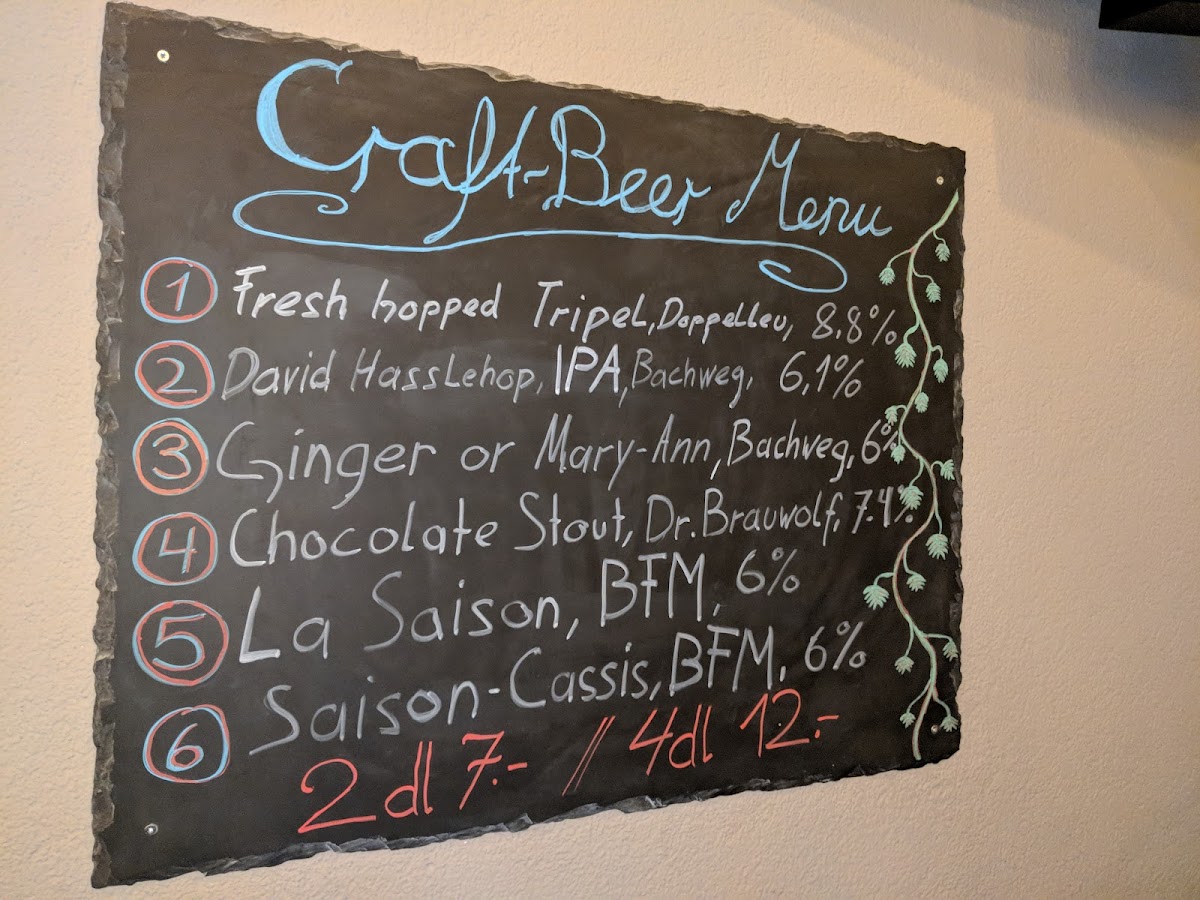 Craft-Beer Menu
1 Fresh hopped Tripel, Doppelleu, 8.8%
2 David Hasslehop, IPA, Bachweg, 6,1%
3 Ginger or Mary-Ann, Bachweg, 6%
4 Chocolate Stout, Dr. Brauwolf, 7.4%
5 La Saison, BFM, 6%
6 Saison-Cassis, BFM, 6%
2 dl 7.- // 4dl 12.-